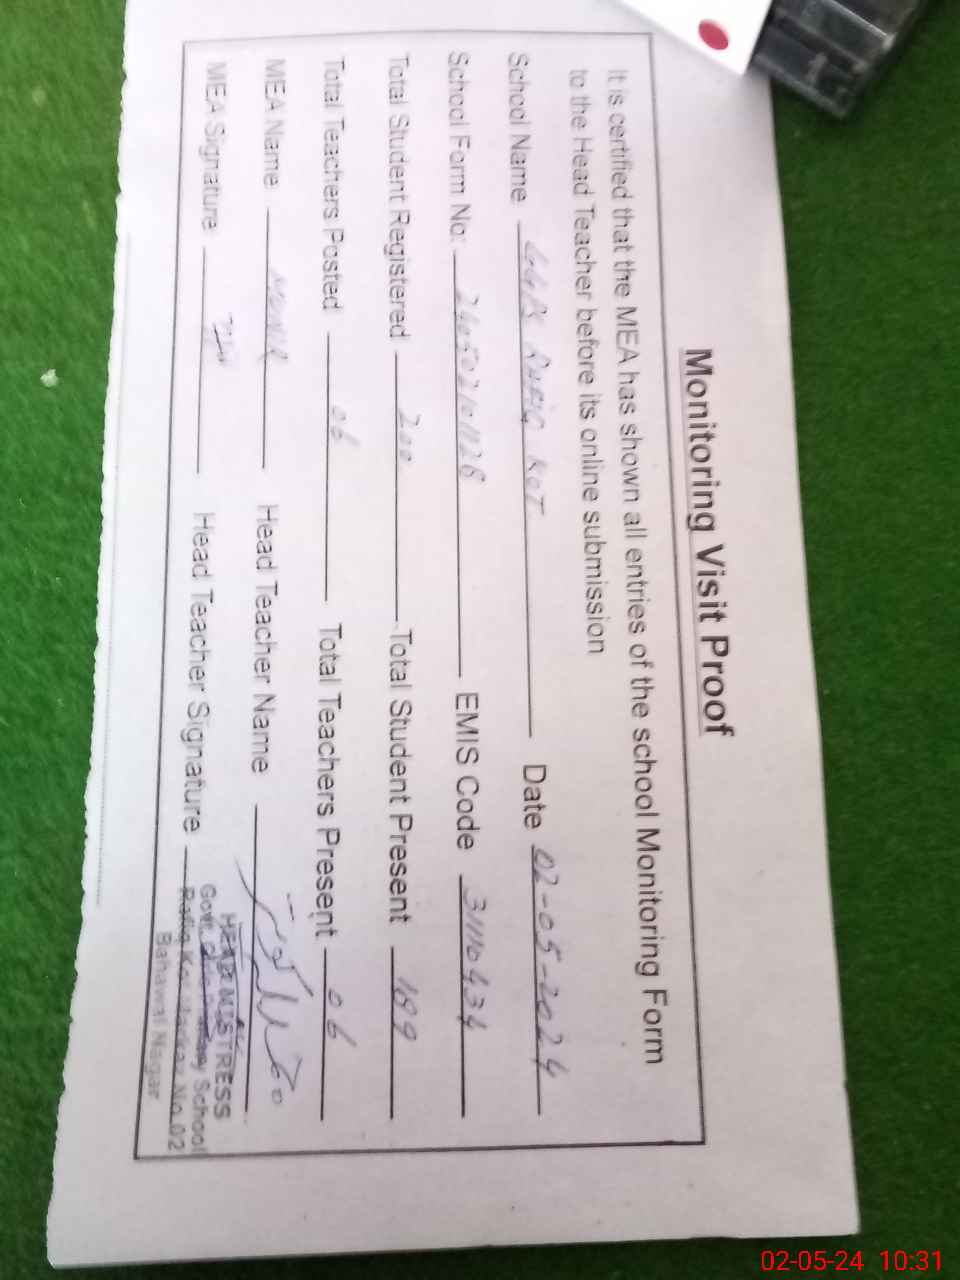 Monitoring Visit Proof
It is certified that the MEA has shown all entries of the school Monitoring Form
to the Head Teacher before its online submission
School Name GGPS RAFIQ KOT Date 02-05-2024
School Form No: EMIS Code 31110434
Total Student Registered 200 Total Student Present 189
Total Teachers Posted 06 Total Teachers Present 06
MEA Name MUNIR Head Teacher Name
MEA Signature Head Teacher Signature
HEAD MISTRESS
Govt. Girls Primary School
Rafiq Kot Markaz No.02
Bahawal Nagar
02-05-24 10:31